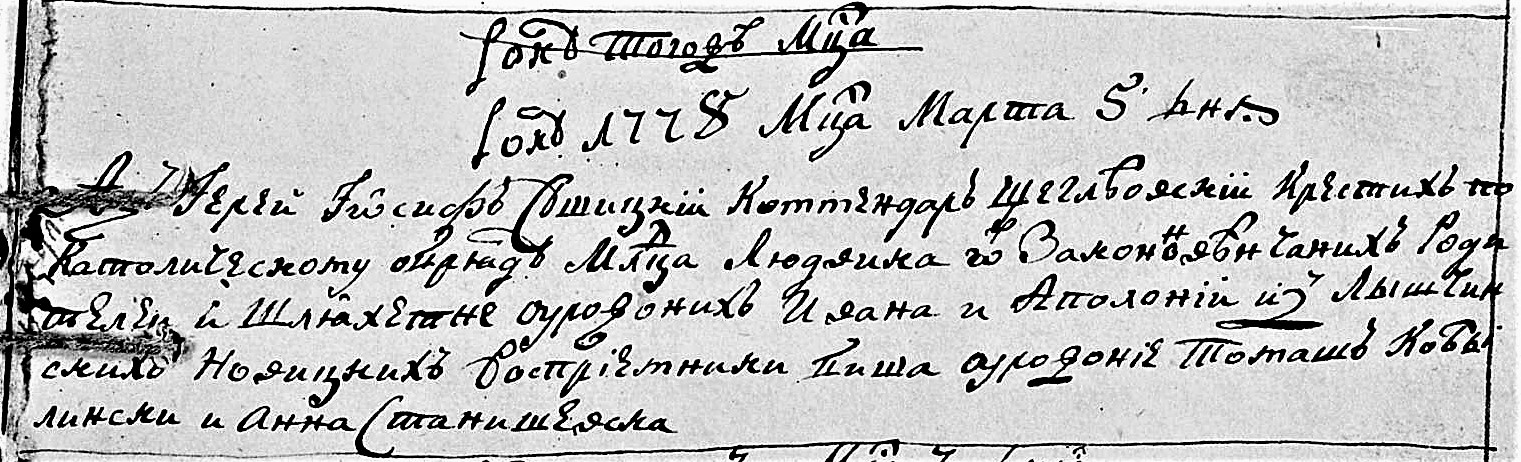 Рокѣ Тогодъ Мц҃а
Рокѣ 1778 Мц҃а Марта 5 днѧ
Я Іерей Іѡсифъ Сѣшицкій Коммендаръ Щеглѣвскій Крестихъ по
Католическому Ѡбрѧдъ Мл҃ца Людвика зъ Законнѣвѣнчанихъ Роди
телей й Шлѧхетне ѹродонихъ Ивана и Аполоній изъ Лышчин
скихъ Новицкихъ Воспріемники Биша ѹродоніе Томашъ Кобы
лински и Анна Станишевска